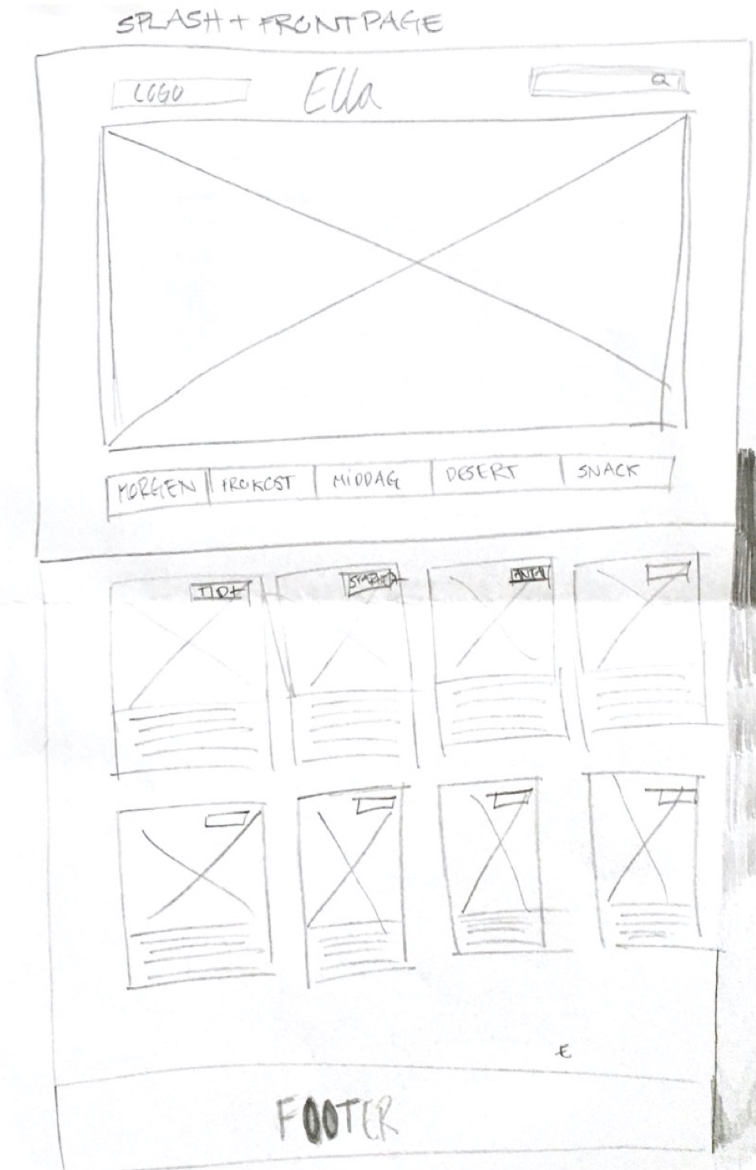 SPLASH + FRONTPAGE
LOGO Ella
MORGEN FROKOST MIDDAG DESERT SNACK
FOOTER